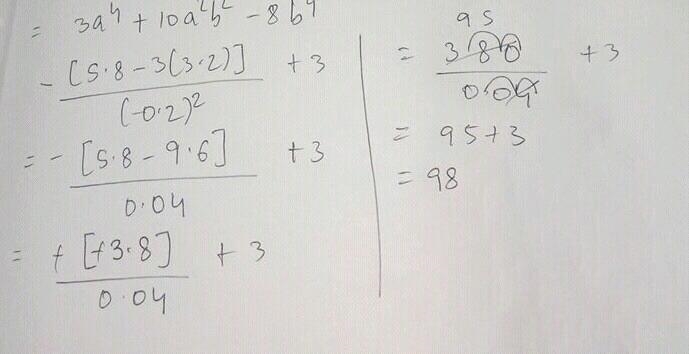 = 3a⁴ + 10a²b² - 8b⁴
- [5.8 - 3(3.2)] / (-0.2)² + 3
= - [5.8 - 9.6] / 0.04 + 3
= + [+3.8] / 0.04 + 3
95
= 380 / 0.04 + 3
= 95 + 3
= 98